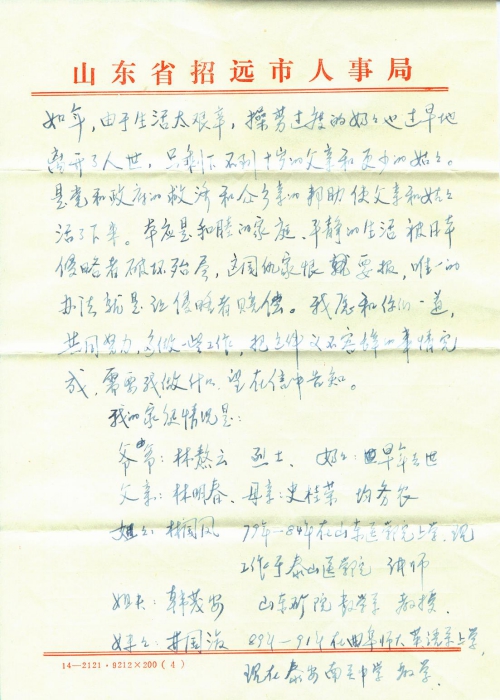 山东省招远市人事局
如年，由于生活太艰辛，操劳过度的奶奶也过早地
离开了人世，只剩下不到十岁的父亲和更少的姑姑。
是党和政府的救济和众乡亲的帮助使父亲和姑姑
活了下来。本应是和睦的家庭、平静的生活被日本
侵略者破坏殆尽，这国仇家恨就要报，唯一的
办法就是让侵略者赔偿。我愿和你们一道，
共同努力，多做一些工作，把这件义不容辞的事情完
成，需要我做什么，望在信中告知。
我的家庭情况是：
爷爷：林熬云 烈士、 奶奶：早年去世
父亲：林明春、母亲：史桂荣 均务农
姐姐：林国风 79年—84年在山东医学院上学，现
工作于泰山医学院 讲师
姐夫：韩茂安 山东矿院数学系 教授.
妹妹：林国 89年—91年在曲阜师大英语系上学，
现在泰安南关中学 教学.
14—2121·9212×200（4）